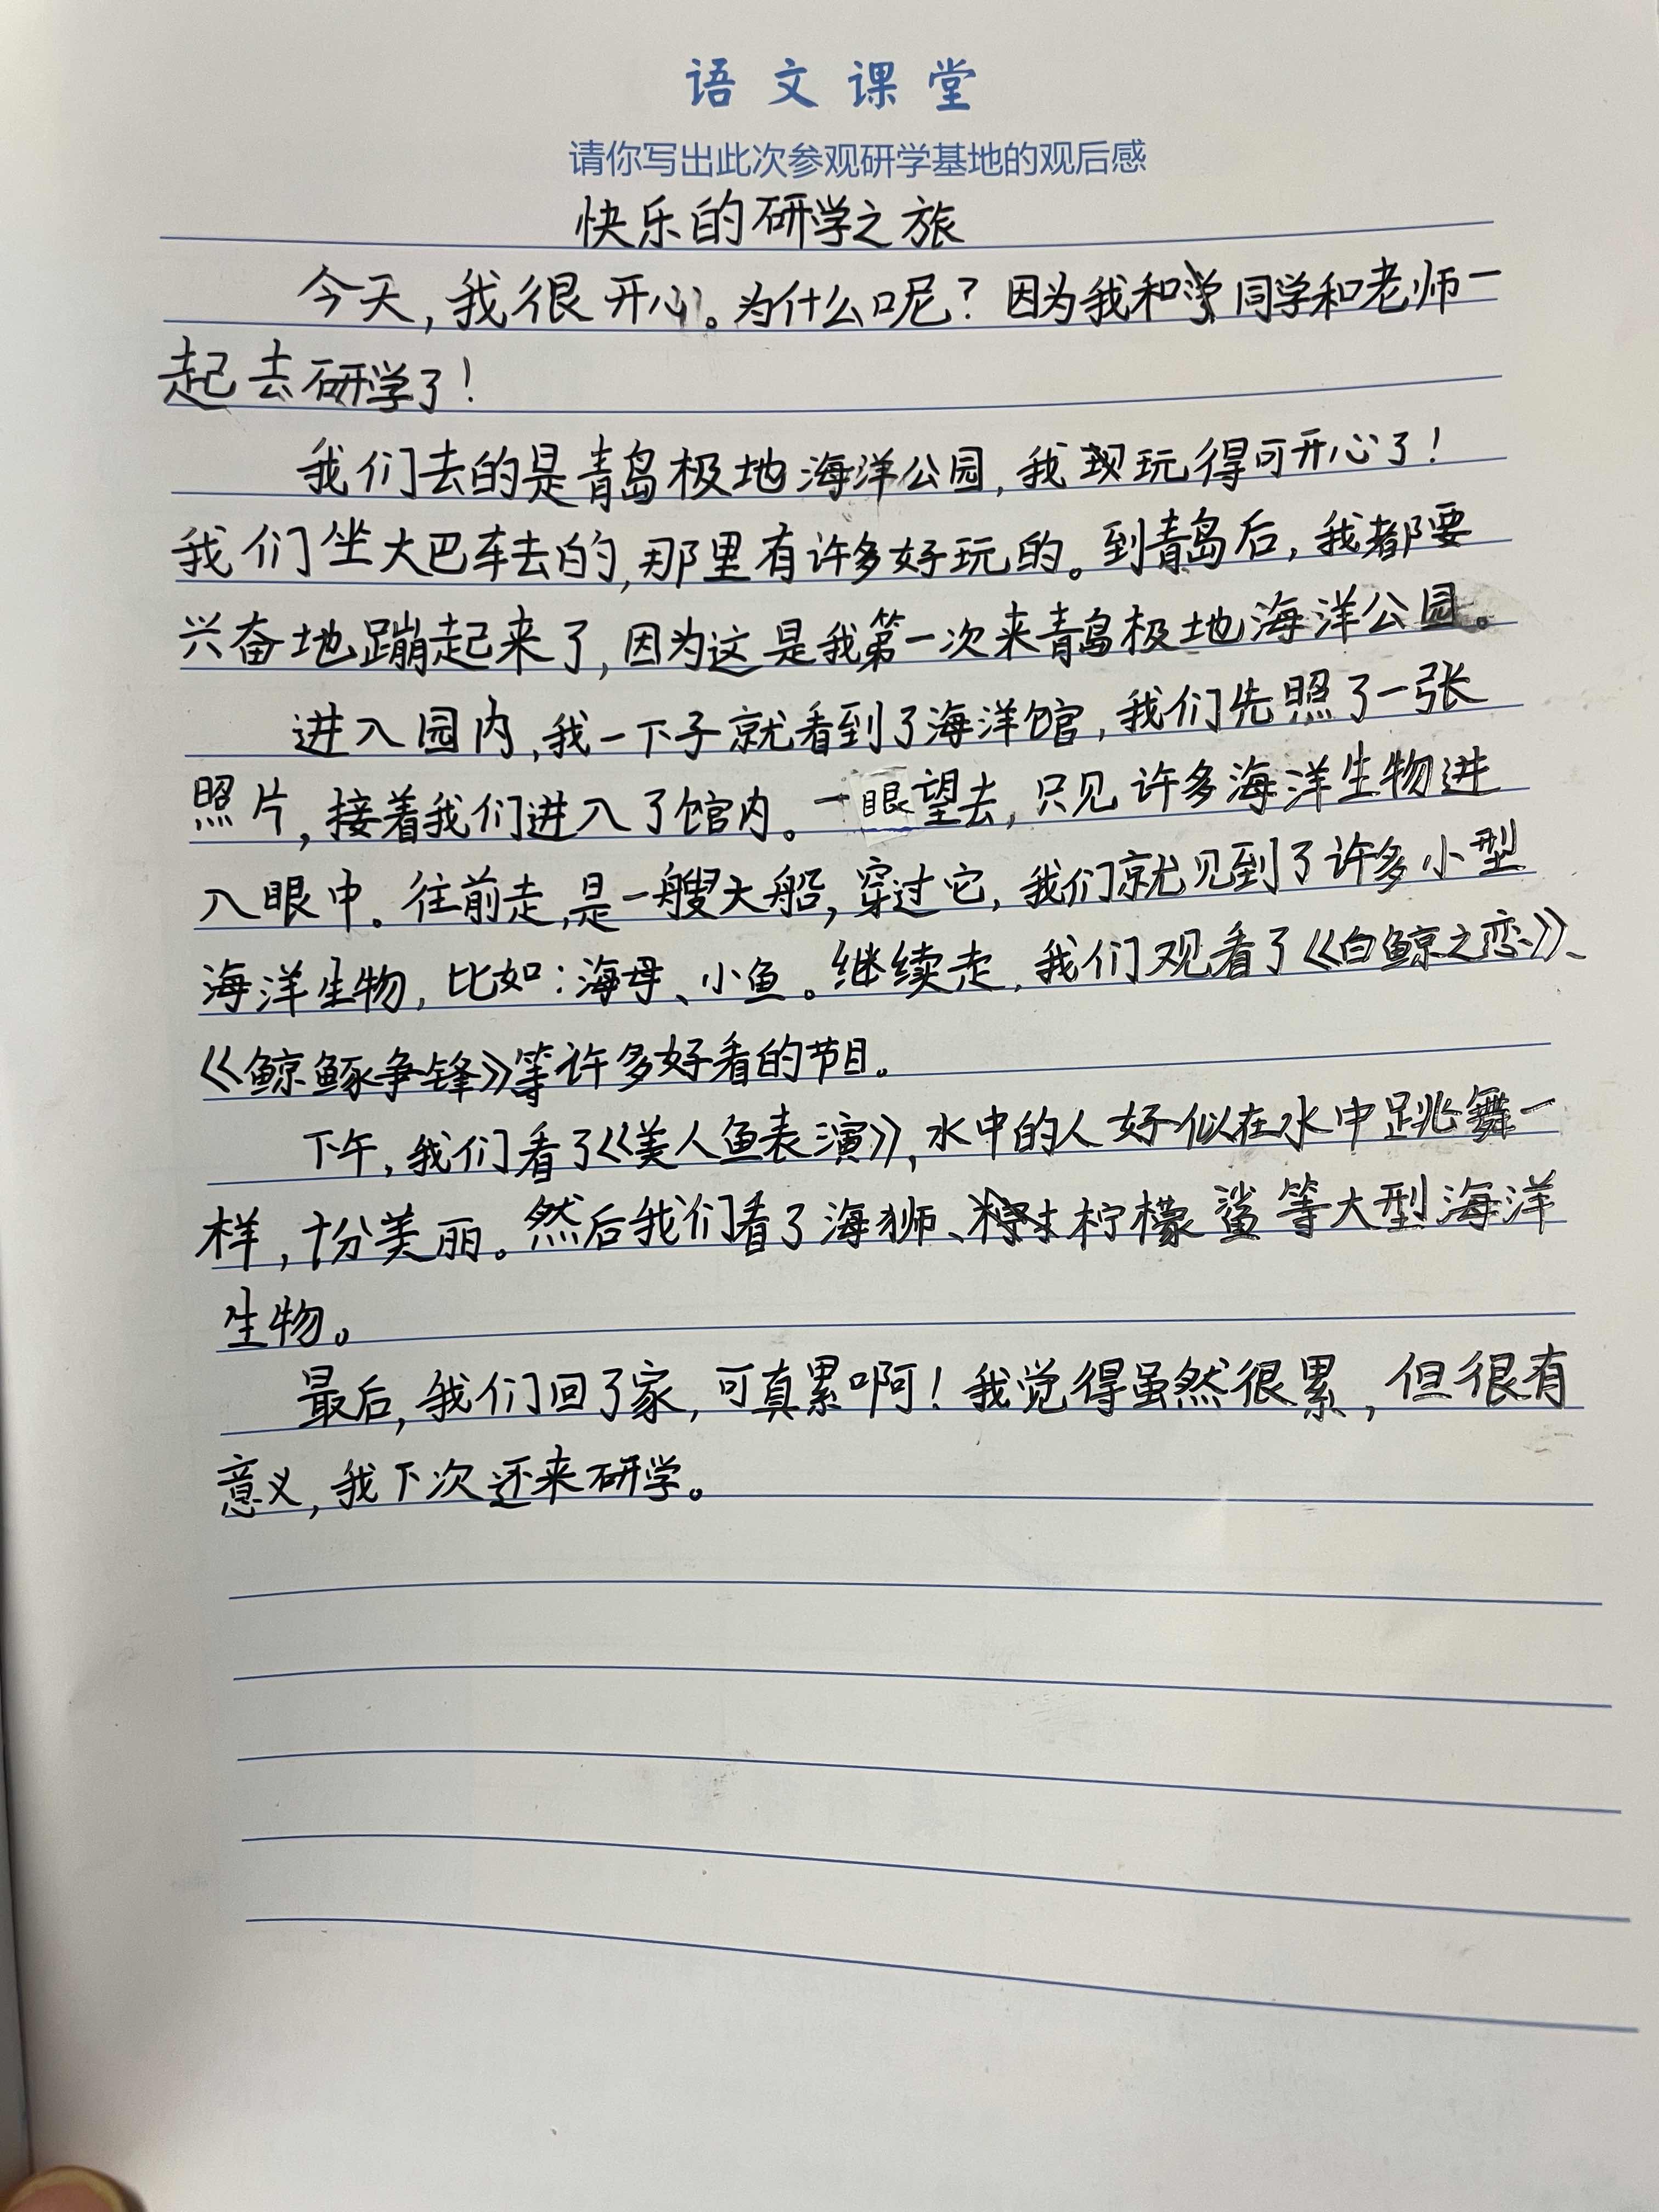 语文课堂
请你写出此次参观研学基地的观后感
快乐的研学之旅
今天，我很开心。为什么呢？因为我和同学和老师一
起去研学了！
我们去的是青岛极地海洋公园，我玩得可开心了！
我们坐大巴车去的，那里有许多好玩的。到青岛后，我都要
兴奋地蹦起来了，因为这是我第一次来青岛极地海洋公园。
进入园内，我一下子就看到了海洋馆，我们先照了一张
照片，接着我们进入了馆内。一眼望去，只见许多海洋生物进
入眼中。往前走，是一艘大船，穿过它，我们就见到了许多小型
海洋生物，比如：海母、小鱼。继续走，我们观看了《白鲸之恋》、
《鲸豚争锋》等许多好看的节目。
下午，我们看了《美人鱼表演》，水中的人好似在水中跳舞一
样，十分美丽。然后我们看了海狮、柠檬鲨等大型海洋
生物。
最后，我们回了家，可真累啊！我觉得虽然很累，但很有
意义，我下次还来研学。